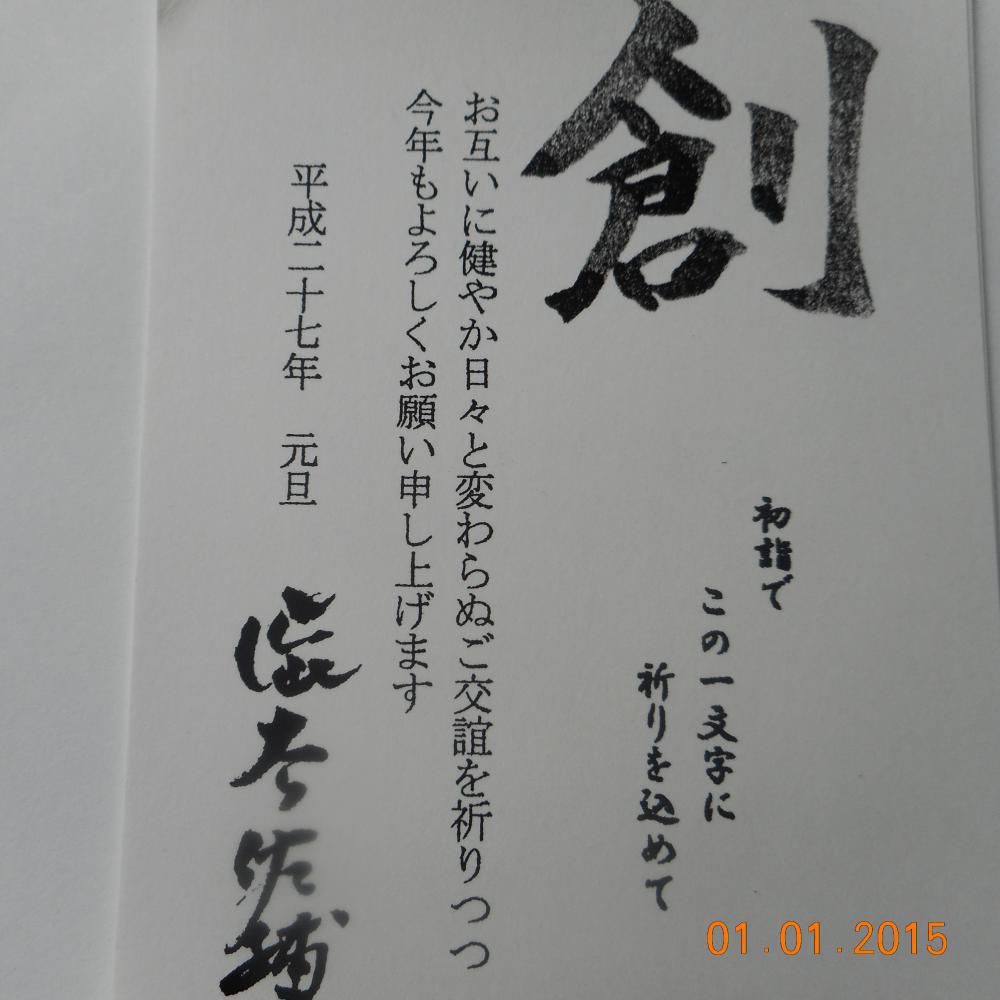 創
初詣で
この一文字に
祈りを込めて
お互いに健やか日々と変わらぬご交誼を祈りつつ
今年もよろしくお願い申し上げます
平成二十七年 元旦
佐輔
01.01.2015